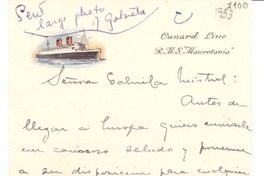 Perú
large photo
of Gabriela
7100
1953
Cunard Line
R.M.S. "Mauretania"
Señora Gabriela Mistral:
Antes de
llegar a Europa quiero enviarle
un cariñoso saludo y ponerme
a su disposición para cualquier